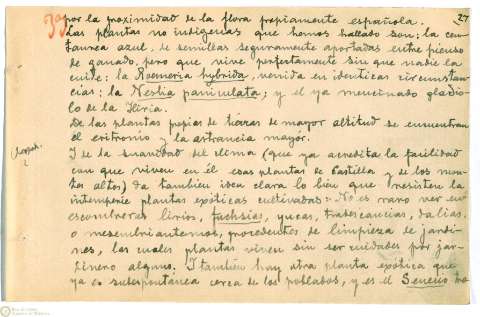 27
por la proximidad de la flora propiamente española.
Las plantas no indígenas que hemos hallado son; la cen-
taurea azul, de semillas seguramente aportadas entre pienso
de ganado, pero que vive perfectamente sin que nadie la
cuide: la Roemeria hybrida, venida en identicas circunstan-
cias; la Neslia paniculata; y el ya mencinado gladio-
lo de la Iliria.
De las plantas propias de tierras de mayor altitud se encuentran
el eritronio y la astrancia mayor.
I de la suavidad del clima (que ya acredita la facilidad
con que viven en él esas plantas de Castilla y de los mon-
tes altos) da tambien idea clara lo bien que resisten la
intemperie plantas exóticas cultivadas: No es raro ver en
escombreras lirios, fuchsias, yucas, tradescancias, dalias,
o mesembriantemos, procedentes de limpieza de jardi-
nes, las cuales plantas viven sin ser cuidadas por jar-
dinero alguno: I tambien hay otra planta exótica que
ya es subespontánea cerca de los poblados, y es el Senecio